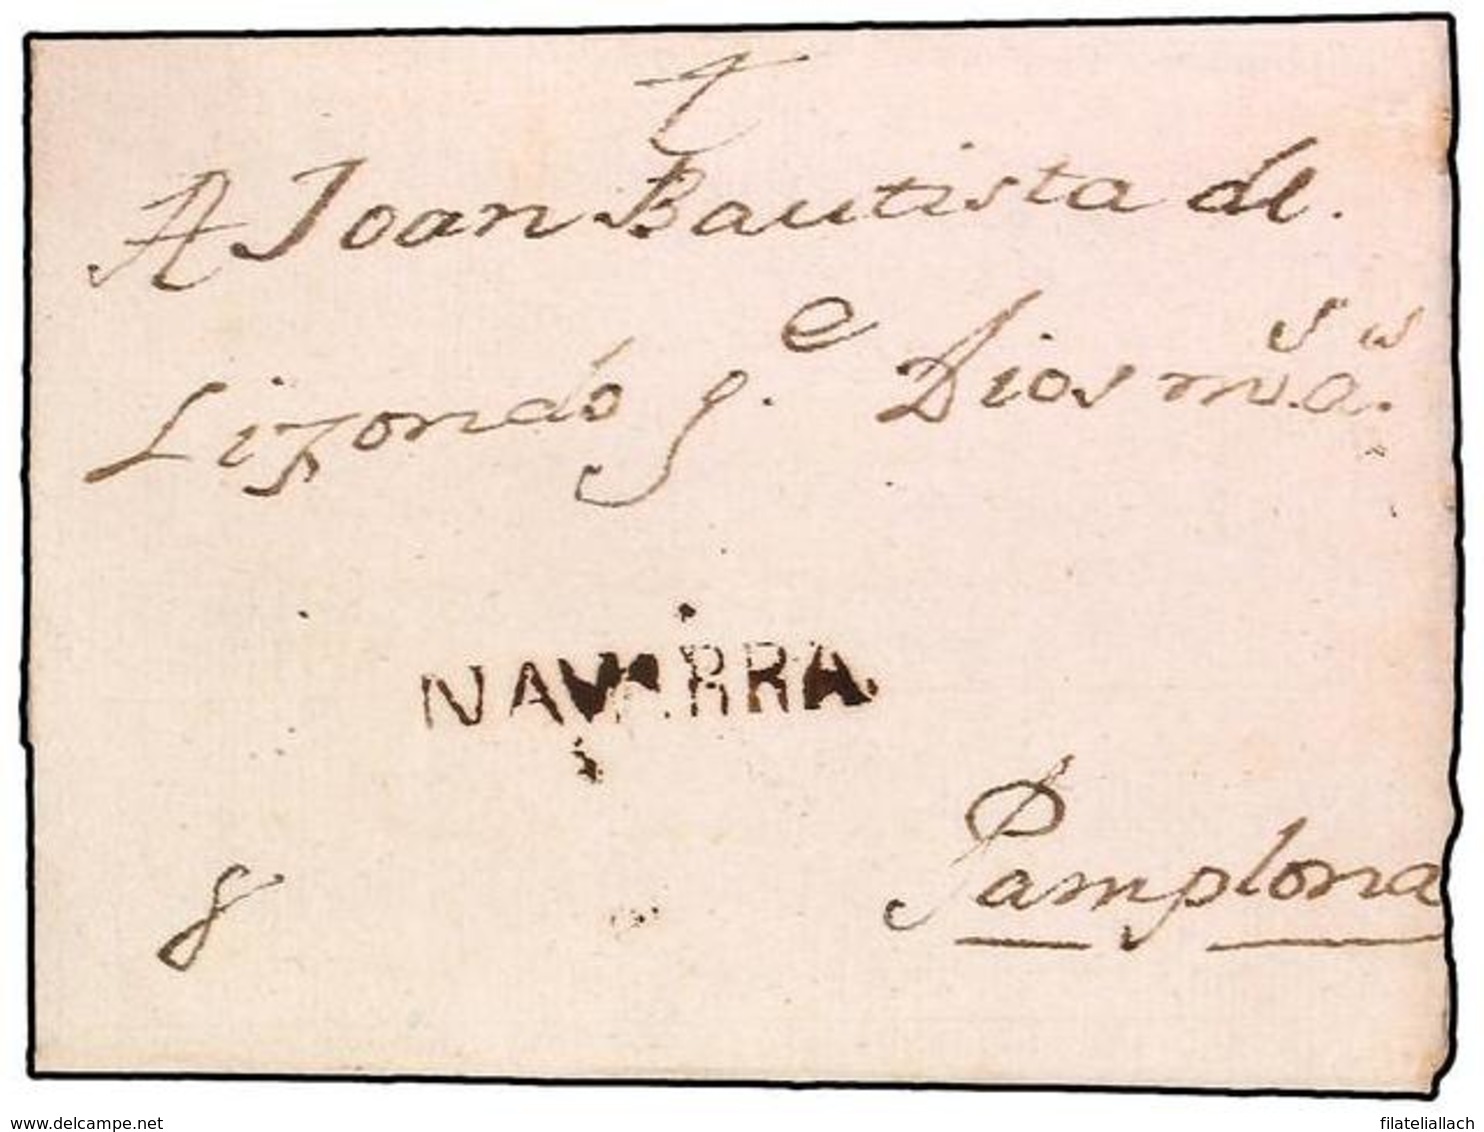 †
A Joan Bautista de.
Lizondo g.e Dios m.s a.s
NAVARRA.
Pamplona
8
www.delcampe.net
filateliallach